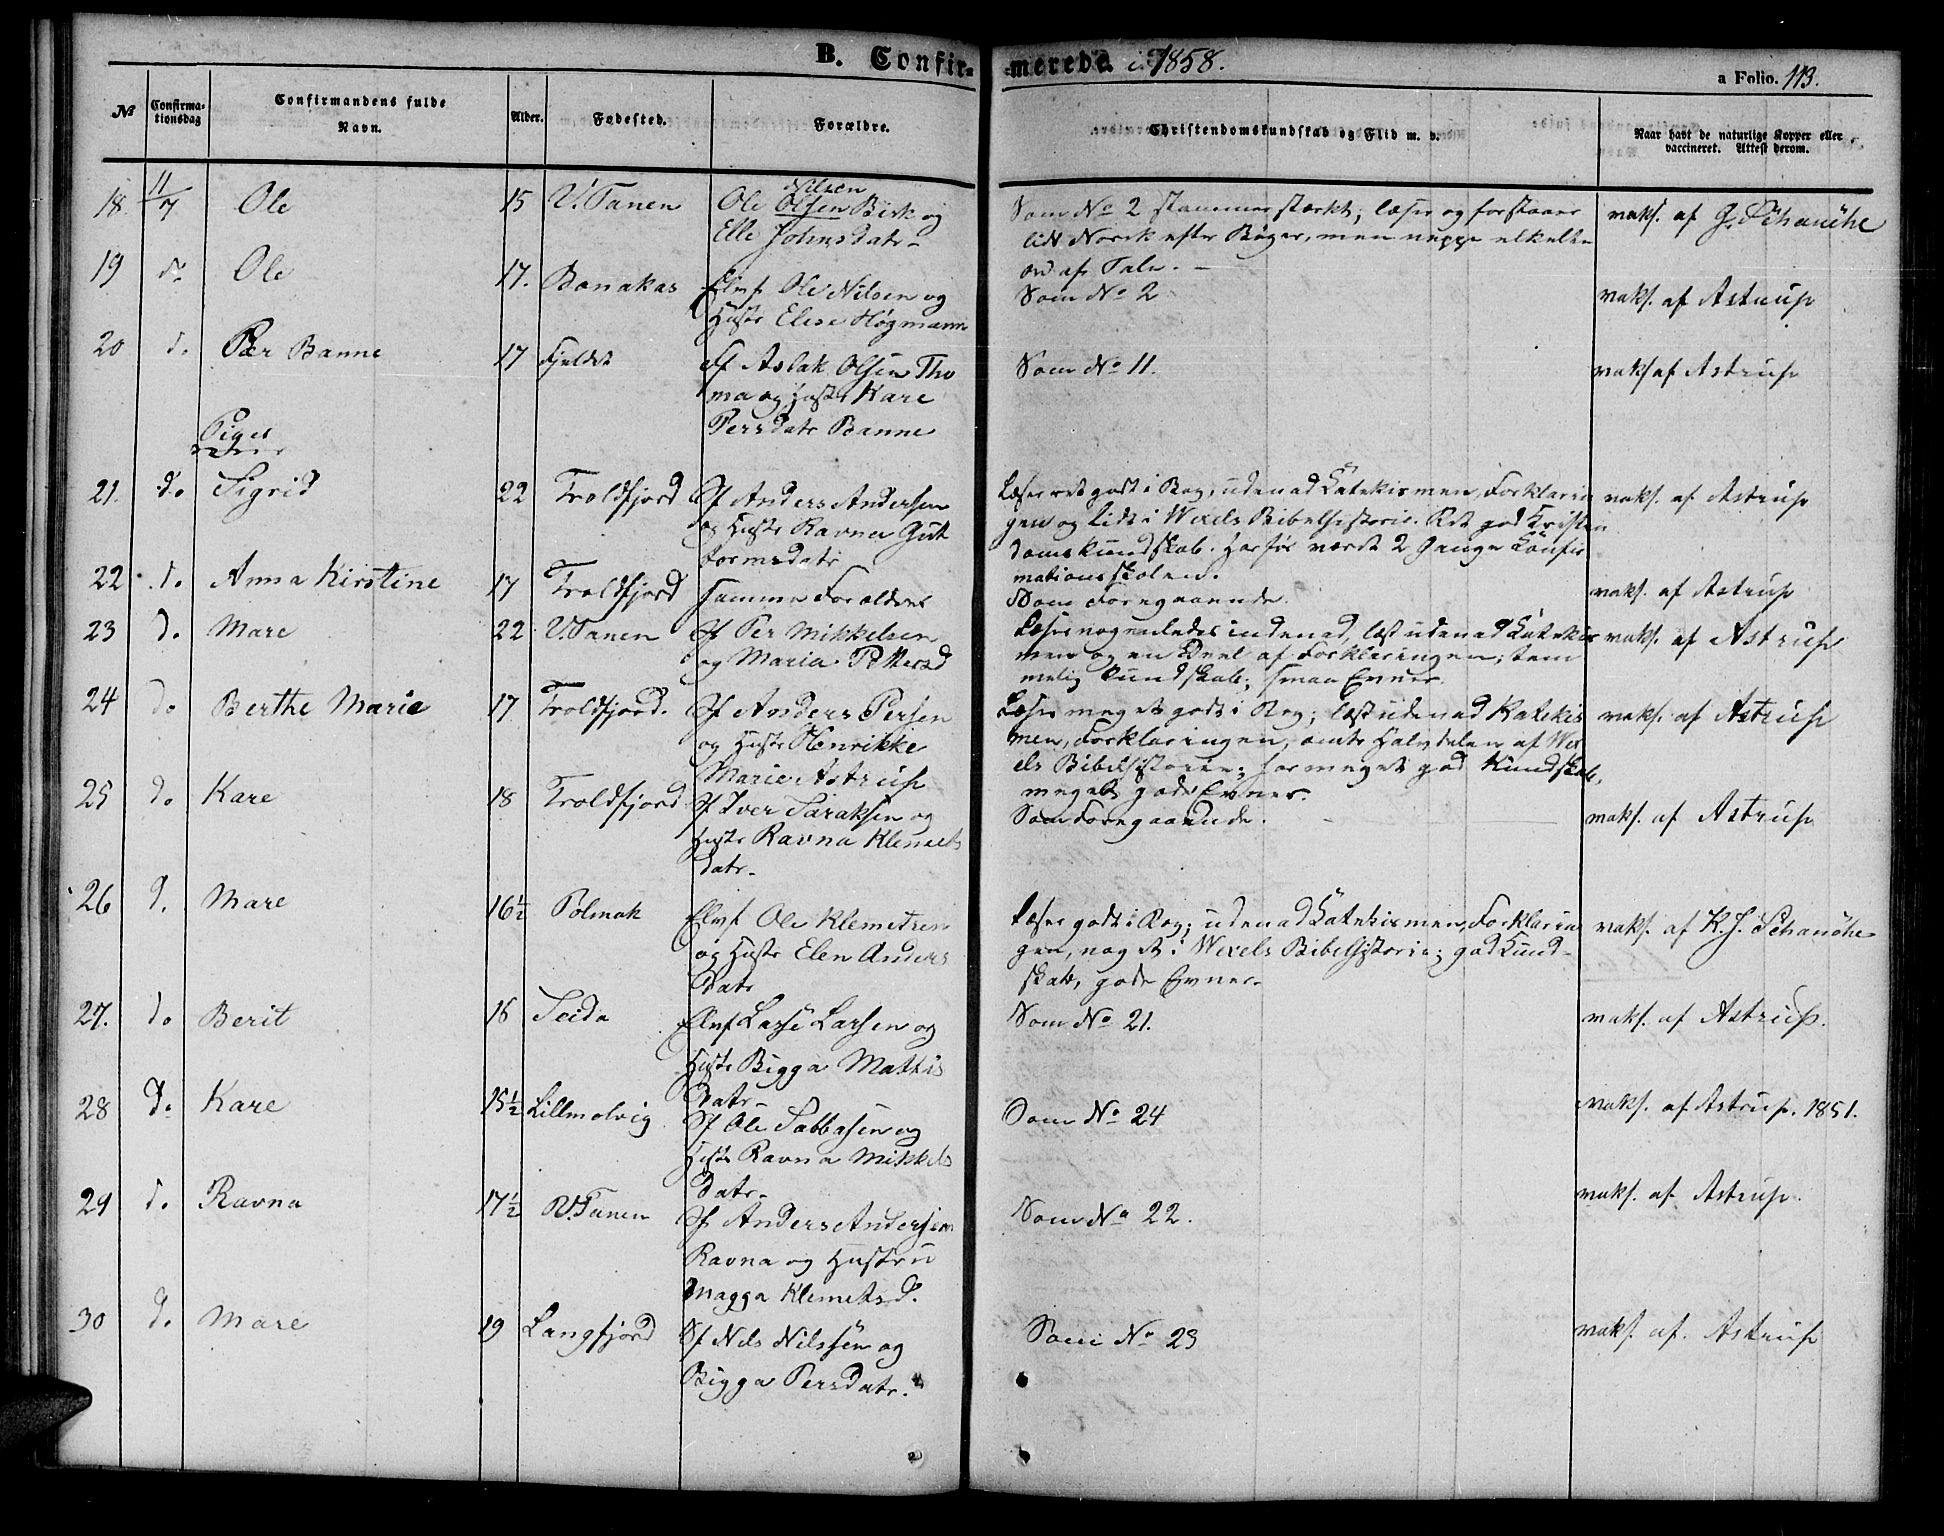 B. Confir- -merede i 1858.
a Folio. 113.
No Confirma-tionsdag Confirmandens fulde Navn. Alder. Fødested. Forældre. Christendomskundskab og Flid m. v. Naar havt de naturlige Kopper eller vaccineret. Attest derom.
18 11/7 Ole 15 V. Tanen Ole Olsen Nilsen Birk og
Elle Johnsdatr
Som No 2 stammer stærkt; læser og forstaaer
lidt Norsk efter Bøger, men neppe elkelte
ord af Tale.
vaks. af G. Schanche
19 do Ole 17. Bonakas Elvf Ole Nilsen og
Hustr Elise Høgmann
Som No 2
vaks. af Astrup
20 d. Per Banne 17 Fjeldet Ff Aslak Olsen Tho
ma og Hustr Kare
Persdatr Banne
Som No 11.
vaks af Astrup
Piger
21. do Sigrid 22 Troldfjord Sf Anders Andersen
og Hustr Ravna Gut
tormsdatr
Læser ret godt i Bog, udenad Katekismen, Forklarin
gen og lidt i Wexels Bibelhistorie. Ret god Kristen
domskundskab. Har før været 2 Gange Konfir
mationsskolen.
vaks. af Astrup
22 do Anna Kirstine 17 Troldfjord samme Forældre
Som Foregaaende.
vaks. af Astrup
23 d. Mare 22 V. Tanen Sf Per Mikkelsen
og Maria Pettersd
Læser nogenledes indenad, læst udenad Katekis
men og en Deel af Forklaringen; tem
melig Kundskab; smaa Evner
vaks. af Astrup
24 do Berthe Marie 17 Troldfjord. Sf Anders Persen
og Hustr Henrikke
Marie Astrup
Læser meget godt i Bog; læst udenad Katekis
men, Forklaringen, omtr Halvdelen af Wex
els Bibelhistorie; har meget god Kundskab,
meget gode Evner.
vaks. af Astrup
25 do Kare 18 Troldfjord Sf Iver Saraksen og
Hustr Ravna Klemets
datr
Som Foregaaende.
vaks. af Astrup
26 d. Mare 16½ Polmak Elvf Ole Klemetsen
og Hustr Elen Anders
datr
Læser godt i Bog; udenad Katekismen, Forklarin
gen, noget i Wexels Bibelhistorie; god Kund-
skab, gode Evner.
vaks. af K. J. Schanche
27. do Berit 16 Seida Elvf Lasse Larsen og
Hustr Bigga Mathis
datr
Som No 21.
vaks. af Astrup.
28 do Kare 15½ Lillmolvig Sf Ole Sabbasen og
Hustr Ravna Mikkels
datr
Som No 24
vaks. af Astrup. 1851.
29 do Ravna 17½ V. Tanen Sf Anders Andersen
Ravna og Hustru
Magga Klemetsd.
Som No 22.
vaks. af Astrup.
30 d. Mare 19 Langfjord Sf Nils Nilssen og
Bigga Persdatr.
Som No 23
vaks. af. Astrup